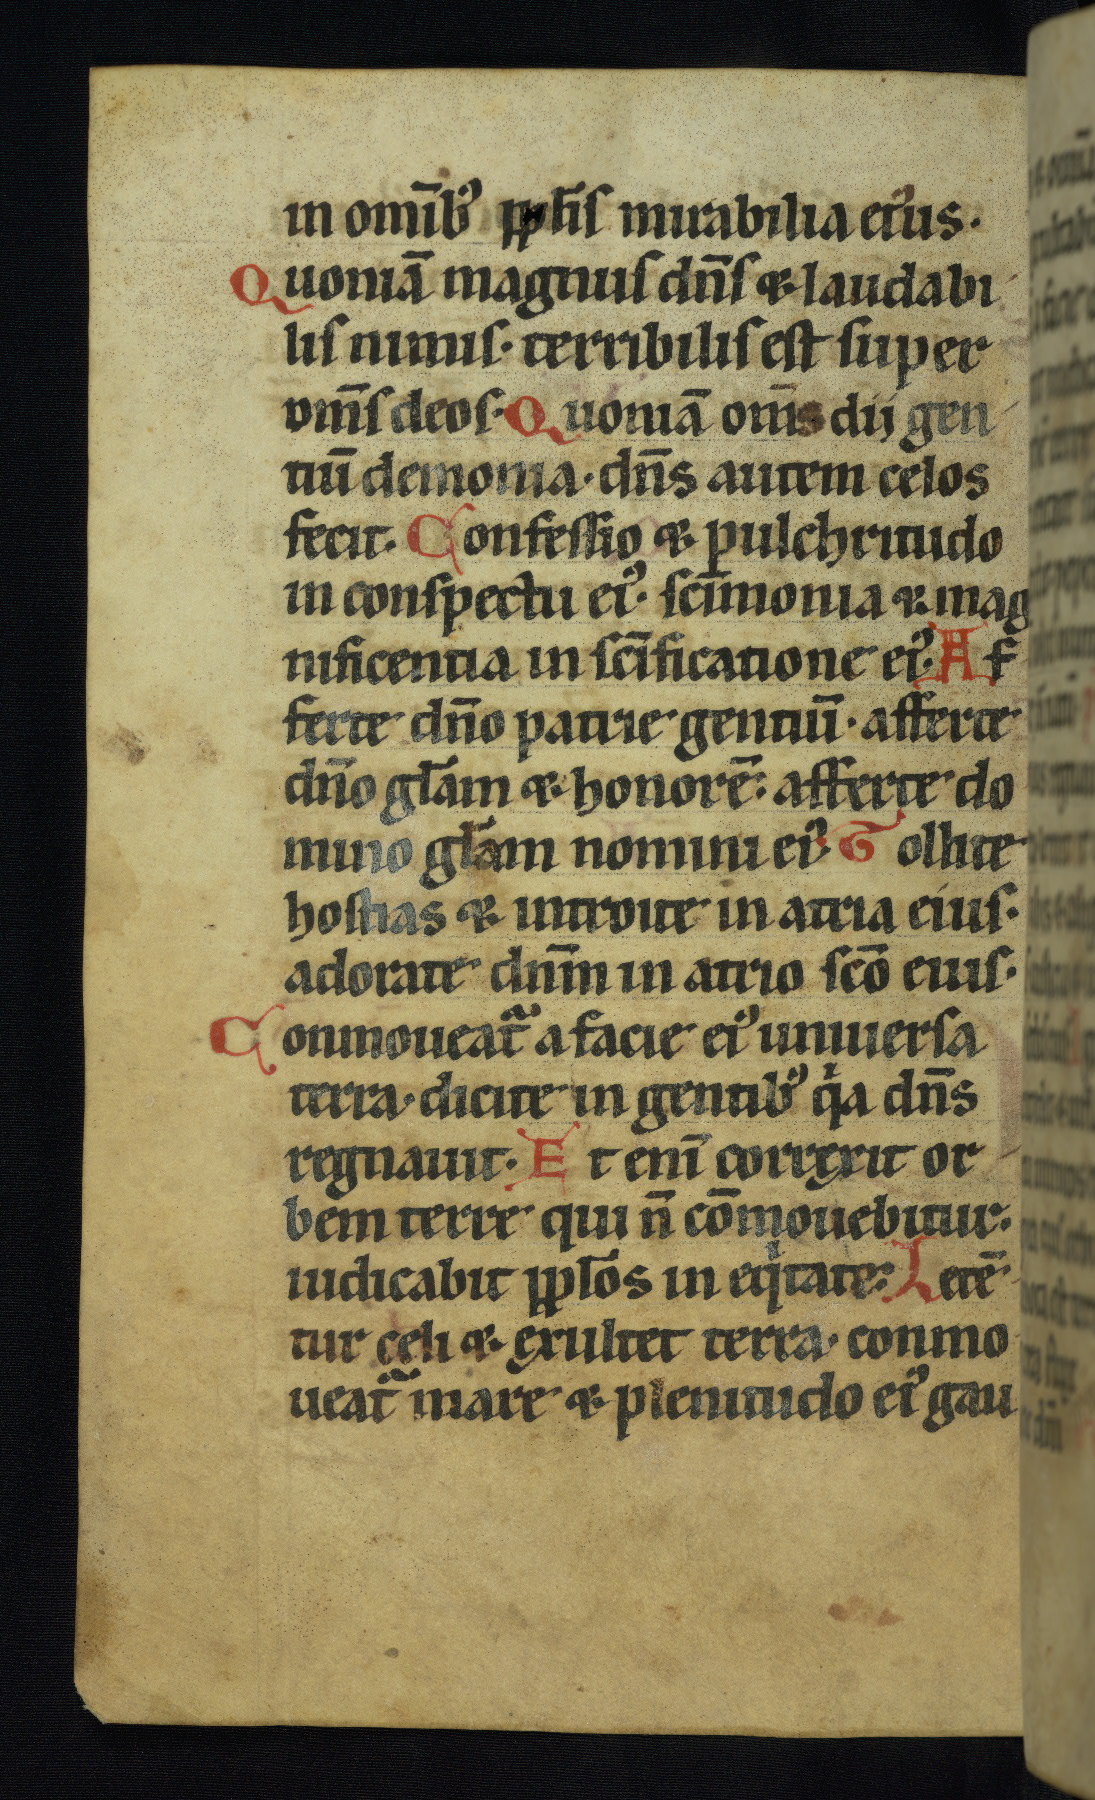 in om̄ibꝰ ppl̄is mirabilia eiꝰus.
Quoniā magnus dn̄s & laudabi
lis nimis. terribilis est super
om̄s deos. Quoniā om̄s dij gen
tiū demonia. dn̄s autem celos
fecit. Confessio & pulchritudo
in conspectu eiꝰ. sc̄imonia & mag
nificentia in sc̄ificatione eiꝰ. Af
ferte dn̄o patrie gentiū. afferte
dn̄o gl̄am & honorē: afferte do
mino gl̄am nomini eiꝰ. Tollite
hostias & introite in atria eius.
adorate dn̄m in atrio sc̄o eius.
Conmoueat᷑ a facie eiꝰ uniuersa
terra. dicite in gentibꝰ qͥa dn̄s
regnauit. Et enī correxit or
bem terre qui n̄ cōmouebitur.
iudicabit ppl̄os in eqͥtate: Letē
tur celi & exultet terra. conmo
ueat᷑ mare & plenitudo eiꝰ gau